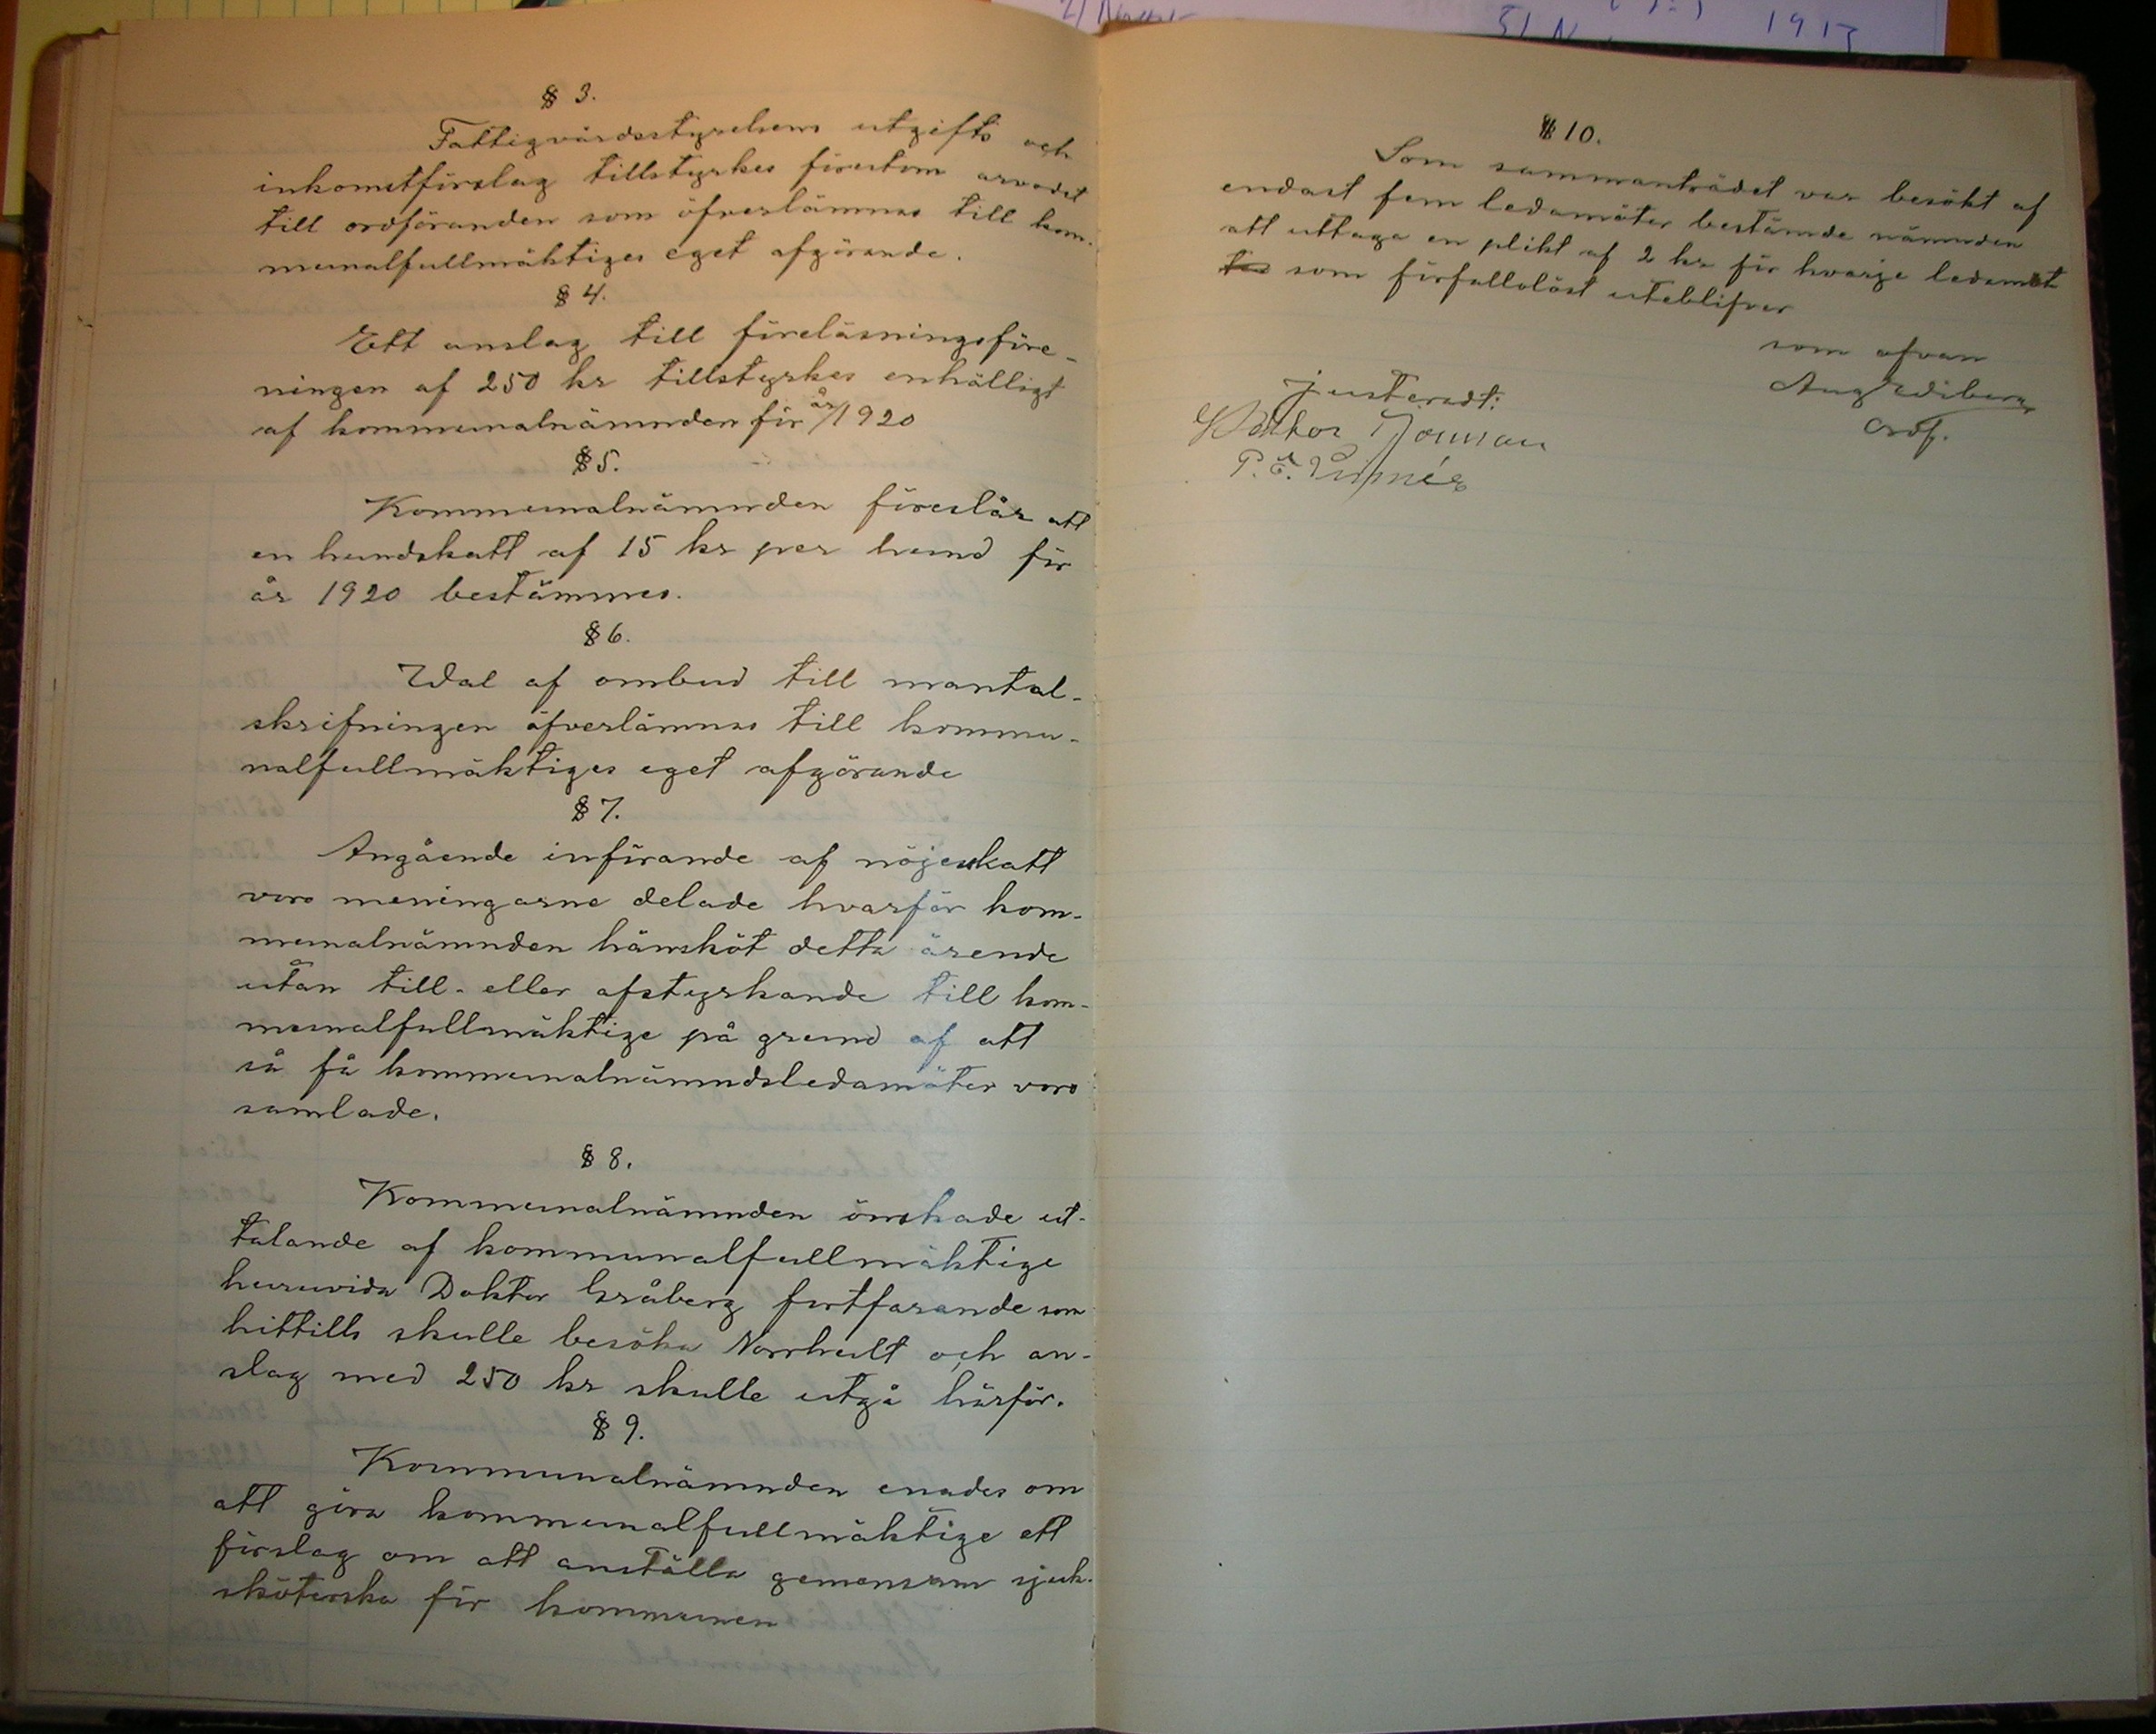 § 3.
Fattigvårdsstyrelsens utgifts och
inkomstförslag tillstyrkes förutom arvodet
till ordföranden som öfverlämnas till kom-
munalfullmäktiges eget afgörande.
§ 4.
Ett anslag till föreläsningsföre-
ningen af 250 kr tillstyrkes enhälligt
af kommunalnämnden för år 1920
§ 5.
Kommunalnämnden föreslår att
en hundskatt af 15 kr per hund för
år 1920 bestämmes.
§ 6.
Wal af ombud till mantal-
skrifningen öfverlämnas till kommu-
nalfullmäktiges eget afgörande
§ 7.
Angående införande af nöjesskatt
voro meningarne delade hvarför kom-
munalnämnden hänsköt detta ärende
utan till- eller afstyrkande till kom-
munalfullmäktige på grund af att
så få kommunalnämndsledamöter voro
samlade.
§ 8.
Kommunalnämnden önskade ut-
talande af kommunalfullmäktige
huruvida Doktor Gråberg fortfarande som
hittills skulle besöka Norrhult och an-
slag med 250 kr skulle utgå härför.
§ 9.
Kommunalnämnden enades om
att göra kommunalfullmäktige ett
förslag om att anställa gemensam sjuk-
sköterska för kommunen
§ 10.
Som sammanträdet var besökt af
endast fem ledamöter bestämde nämnden
att uttaga en plikt af 2 kr för hvarje ledamot
som förfallolöst uteblifver
som ofvan
Aug Wiberg
Ordf.
Justeradt:
P. E.
1913